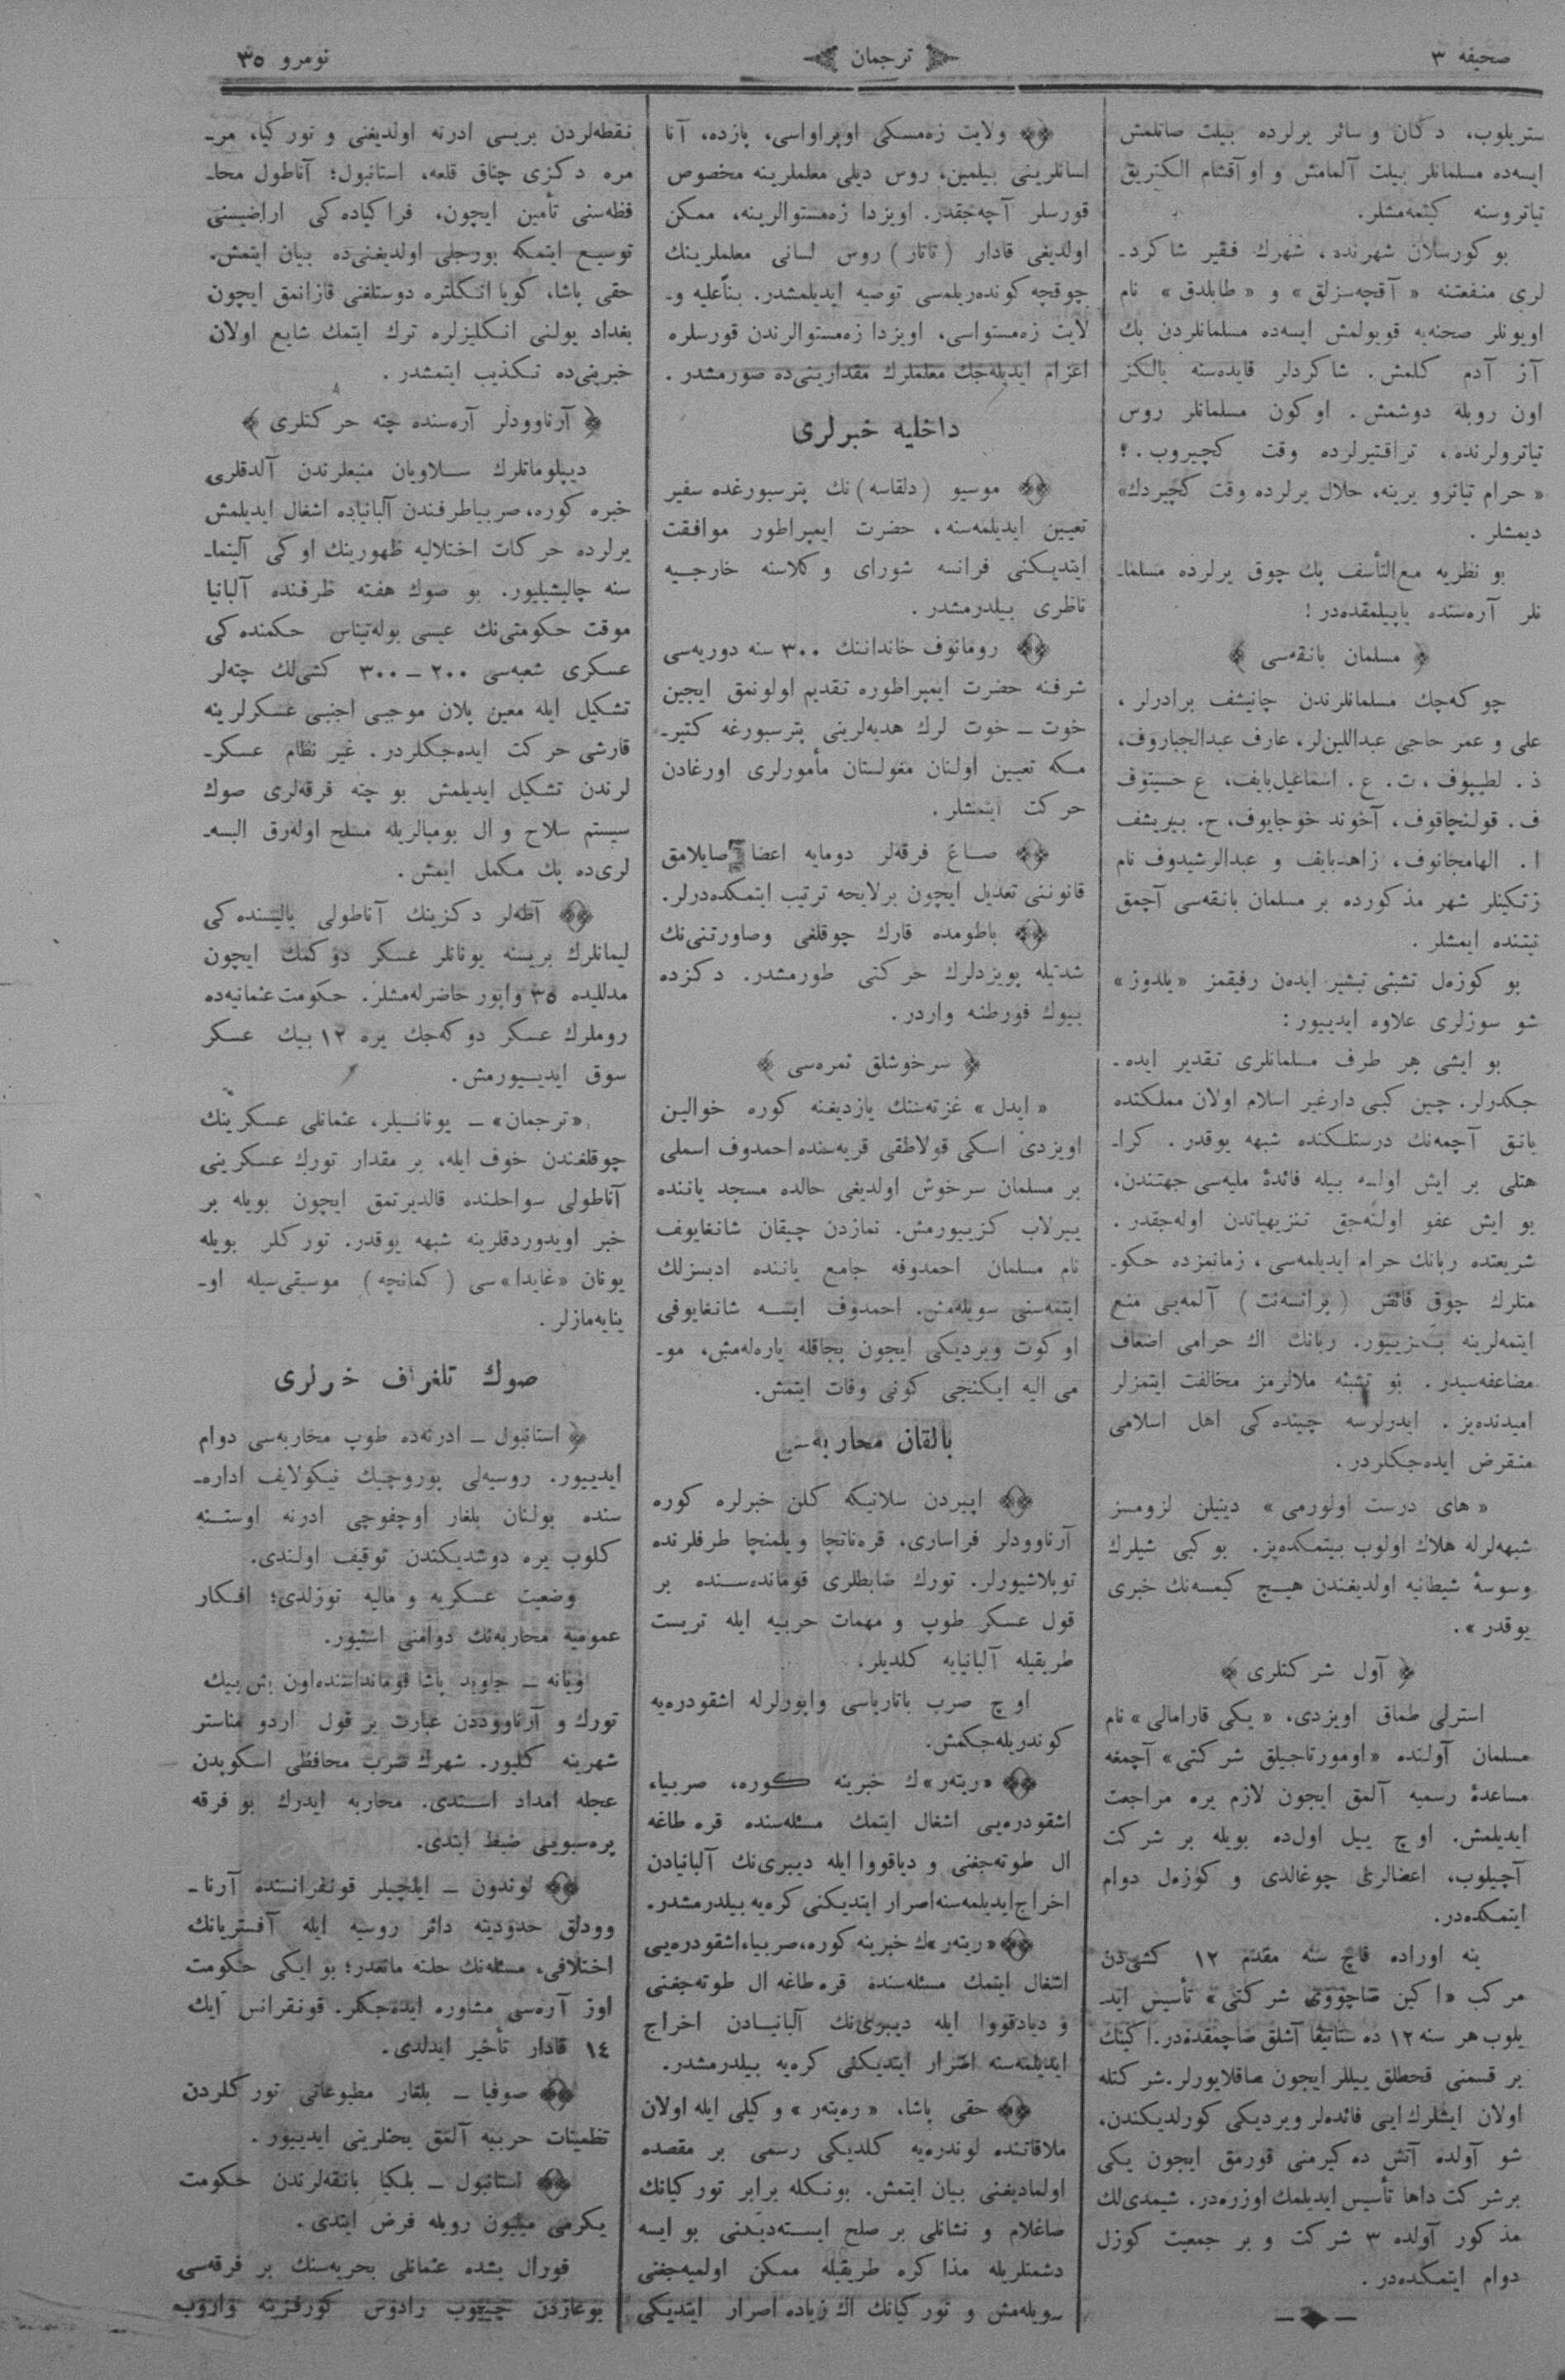 صحیفه ٣
ترجمان
نومرو ٣٥
ستریلوب، دکان و سائر یرلرده بیلت صاتلمش
ایسه‌ده مسلمانلر بیلت آلمامش و او آقشام الکتریق
تیاتروسنه کیتمه‌مشلر.
بوکورسلان شهرنده، شهرك فقیر شاکرد-
لری منفعتنه «آقچه‌سزلق» و «طابلدق» نام
اویونلر صحنه‌یه قویولمش ایسه‌ده مسلمانلردن بك
آز آدم کلمش. شاکردلر فایده‌سنه یالکز
اون روبله دوشمش. او کون مسلمانلر روس
تیاترولرنده، تراقتیرلرده وقت کچیروب.؛
«حرام تیاترو یرینه، حلال یرلرده وقت کچیردك»
دیمشلر.
بو نظریه مع‌التأسف پك چوق یرلرده مسلما-
نلر آره‌سنده یاپیلمقده‌در!
﴿ مسلمان بانقه‌سی ﴾
چوکه‌چك مسلمانلرندن چانیشف برادرلر،
علی و عمر حاجی عبداللین‌لر، عارف عبدالجباروف،
ذ. لطیپوف، ت. ع. اسماعیل‌بایف، ع حسیتوف
ف. قولنچاقوف، آخوند خوجایوف، ح. بیریشف
ا. الهامجانوف، زاهدبایف و عبدالرشیدوف نام
زنکینلر شهر مذکورده بر مسلمان بانقه‌سی آچمق
نیتنده ایمشلر.
بو کوزه‌ل تشبثی تبشیر ایده‌ن رفیقمز «یلدوز»
شو سوزلری علاوه ایدییور:
بو ایشی هر طرف مسلمانلری تقدیر ایده-
جکدرلر. چین کبی دارغیر اسلام اولان مملکتده
بانق آچمه‌نك درستلکنده شبهه یوقدر. کرا-
هتلی بر ایش اولسه بیله فائدهٔ ملیه‌سی جهتندن،
بو ایش عفو اولنه‌جق تنزیهیاتدن اوله‌جقدر.
شریعتده ربانك حرام ایدیلمه‌سی، زمانمزده حکو-
متلرك چوق فائض (پرانسه‌نت) آلمه‌یی منع
ایتمه‌لرینه بکزییور. ربانك اك حرامی اضعاف
مضاعفه‌سیدر. بو تشبثه ملالرمز مخالفت ایتمزلر
امیدنده‌یز. ایدرلرسه چینده‌کی اهل اسلامی
منقرض ایده‌جکلردر.
«های درست اولورمی» دینیلن لزومسز
شبهه‌لرله هلاك اولوب بیتمکده‌یز. بو کبی شیلرك
وسوسهٔ شیطانیه اولدیغندن هیچ کیمسه‌نك خبری
یوقدر».
﴿ آول شرکتلری ﴾
استرلی طماق اویزدی، «یکی قارامالی» نام
مسلمان آولنده «اومورتاجیلق شرکتی» آچمغه
مساعدهٔ رسمیه آلمق ایچون لازم یره مراجعت
ایدیلمش. اوچ ییل اول‌ده بویله بر شرکت
آچیلوب، اعضالری چوغالدی و کوزه‌ل دوام
ایتمکده‌در.
ینه اوراده قاچ سنه مقدم ١٢ کشی‌دن
مرکب «اکین صاچووی شرکتی» تأسیس اید-
یلوب هر سنه ١٢ ده ستاتیقا آشلق صاچمقده‌در. اکینك
بر قسمنی قحطلق ییللر ایچون صاقلایورلر. شرکتله
اولان ایشلرك ایی فائده‌لر ویردیکی کورلدیکندن،
شو آولده آتش ده‌کیرمنی قورمق ایچون یکی
برشرکت داها تأسیس ایدیلمك اوزره‌در. شیمدی‌لك
مذکور آولده ٣ شرکت و بر جمعیت کوزل
دوام ایتمکده‌در.
ولایت زه‌مسکی اوپراواسی، یازده، آنا
لسانلرینی بیلمین، روس دیلی معلملرینه مخصوص
قورسلر آچه‌جقدر. اویزدا زه‌مستوالرینه، ممکن
اولدیغی قادار (تاتار) روس لسانی معلملرینك
چوقچه کونده‌ریلمسی توصیه ایدیلمشدر. بناءعلیه و-
لایت زه‌مستواسی، اویزدا زه‌مستوالرندن قورسلره
اعزام ایدیله‌جك معلملرك مقدارینی‌ده صورمشدر.
داخلیه خبرلری
موسیو (دلقاسه)نك پترسبورغده سفیر
تعیین ایدیلمه‌سنه، حضرت ایمپراطور موافقت
ایتدیکنی فرانسه شورای وکلاسنه خارجیه
ناظری بیلدرمشدر.
رومانوف خانداننك ٣٠٠ سنه دوریه‌سی
شرفنه حضرت ایمپراطوره تقدیم اولونمق ایچین
خوت – خوت لرك هدیه‌لرینی پترسبورغه کتیر-
مکه تعیین اولنان مغولستان مأمورلری اورغادن
حرکت ایتمشلر.
صاغ فرقه‌لر دومایه اعضا صایلامق
قانوننی تعدیل ایچون برلایحه ترتیب ایتمکده‌درلر.
باطومده قارك چوقلغی وصاورتنی‌نك
شدتیله پویزدلرك حرکتی طورمشدر. دکزده
بیوك فورطنه واردر.
﴿ سرخوشلق ثمره‌سی ﴾
«ایدل» غزته‌سنك یازدیغنه کوره خوالین
اویزدی اسکی قولاطقی قریه‌سنده احمدوف اسملی
بر مسلمان سرخوش اولدیغی حالده مسجد یاننده
ییرلاب کزییورمش. نمازدن چیقان شانغایوف
نام مسلمان احمدوفه جامع یاننده ادبسزلك
ایتمه‌سنی سویله‌مش. احمدوف ایسه شانغایوفی
اوکوت ویردیکی ایچون پچاقله یاره‌له‌مش، مو-
می الیه ایکنجی کونی وفات ایتمش.
بالقان محاربه‌سی
اپیردن سلانیکه کلن خبرلره کوره
آرناوودلر فراساری، قره‌ناتچا ویلمنچا طرفلرنده
توپلاشیورلر. تورك ضابطلری قومانده‌سنده بر
قول عسکر طوپ و مهمات حربیه ایله تریست
طریقیله آلبانیایه کلدیلر.
اوچ صرب باتاریاسی واپورلرله اشقودره‌یه
کوندریله‌جکمش.
«ریته‌ر»ك خبرینه کوره، صربیا،
اشقودره‌یی اشغال ایتمك مسئله‌سنده قره طاغه
ال طوته‌جغنی و دیاقووا ایله دیبری‌نك آلبانیادن
اخراج ایدیلمه‌سنه اصرار ایتدیکنی کره‌یه بیلدرمشدر.
«ریته‌ر»ك خبرینه کوره، صربیا، اشقودره‌یی
اشغال ایتمك مسئله‌سنده قره طاغه ال طوته‌جغنی
و دیادقووا ایله دیبری‌نك آلبانیادن اخراج
ایدیلمه‌سنه اصرار ایتدیکنی کره‌یه بیلدرمشدر.
حقی پاشا، «ره‌یته‌ر» وکیلی ایله اولان
ملاقاتنده لوندره‌یه کلدیکی رسمی بر مقصده
اولمادیغنی بیان ایتمش. بونکله برابر تورکیانك
صاغلام و نشانلی بر صلح ایسته‌دیکنی بو ایسه
دشمنلریله مذاکره طریقیله ممکن اولمیه‌جغنی
سویله‌مش و تورکیانك اك زیاده اصرار ایتدیکی
نقطه‌لردن بریسی ادرنه اولدیغنی و تورکیا، مر-
مره دکزی چناق قلعه، استانبول؛ آناطول محا-
فظه‌سنی تأمین ایچون، فراکیاده‌کی اراضیسنی
توسیع ایتمکه بورجلی اولدیغنی‌ده بیان ایتمش.
حقی پاشا، کویا انکلتره دوستلغنی قازانمق ایچون
بغداد یولنی انکلیزلره ترك ایتمك شایع اولان
خبرینی‌ده تکذیب ایتمشدر.
﴿ آرناوودلر آره‌سنده چته حرکتلری ﴾
دیپلوماتلرك سلاویان منبعلرندن آلدقلری
خبره کوره، صربیاطرفندن آلبانیاده اشغال ایدیلمش
یرلرده حرکات اختلالیه ظهورینك اوکی آلینما-
سنه چالیشیلیور. بو صوك هفته ظرفنده آلبانیا
موقت حکومتی‌نك عیسی بوله‌تیناس حکمنده‌کی
عسکری شعبه‌سی ٢٠٠ – ٣٠٠ کشی‌لك چته‌لر
تشکیل ایله معین پلان موجبی اجنبی عسکرلرینه
قارشی حرکت ایده‌جکلردر. غیر نظام عسکر-
لرندن تشکیل ایدیلمش بو چته فرقه‌لری صوك
سیستم سلاح و ال بومبالریله مسلح اوله‌رق البسه-
لری‌ده پك مکمل ایمش.
آطه‌لر دکزینك آناطولی یالیسنده‌کی
لیمانلرك بریسنه یونانلر عسکر دوکمك ایچون
مدللیده ٣٥ واپور حاضرله‌مشلر. حکومت عثمانیه‌ده
روملرك عسکر دوکه‌جك یره ١٢ بیك عسکر
سوق ایدییورمش.
«ترجمان» – یونانیلر، عثمانلی عسکرینك
چوقلغندن خوف ایله، بر مقدار تورك عسکرینی
آناطولی سواحلنده قالدیرتمق ایچون بویله بر
خبر اویدوردقلرینه شبهه یوقدر. تورکلر بویله
یونان «غایدا»سی (کمانچه) موسیقی‌سیله او-
ینایه‌مازلر.
صوك تلغراف خبرلری
استانبول – ادرنه‌ده طوپ محاربه‌سی دوام
ایدییور. روسیه‌لی پوروچیك نیکولایف اداره-
سنده بولنان بلغار اوچقوچی ادرنه اوستنه
کلوب یره دوشدیکندن توقیف اولندی.
وضعیت عسکریه و مالیه توزلدی؛ افکار
عمومیه محاربه‌نك دوامنی استیور.
ویانه – جاوید پاشا قومانداسنده اون بش بیك
تورك و آرناووددن عبارت بر قول اردو مناستر
شهرینه کلیور. شهرك صرب محافظی اسکوبدن
عجله امداد استدی. محاربه ایدرك بو فرقه
پره‌سبویی ضبط ایتدی.
لوندون – ایلچیلر قونفرانسنده آرنا-
وودلق حدودینه دائر روسیه ایله آفستریانك
اختلافی، مسئله‌نك حلنه مانعدر؛ بو ایکی حکومت
اوز آره‌سی مشاوره ایده‌جکلر. قونفرانس آیك
١٤ قادار تأخیر ایدلدی.
صوفیا – بلغار مطبوعاتی تورکلردن
تظمینات حربیه آلمق بحثلرینی ایدییور.
استانبول – بلکیا بانقه‌لرندن حکومت
یکرمی میلیون روبله قرض ایتدی.
قورال یشده عثمانلی بحریه‌سنك بر فرقه‌سی
بوغازدن چیقوب رادوس کورفزینه واروب